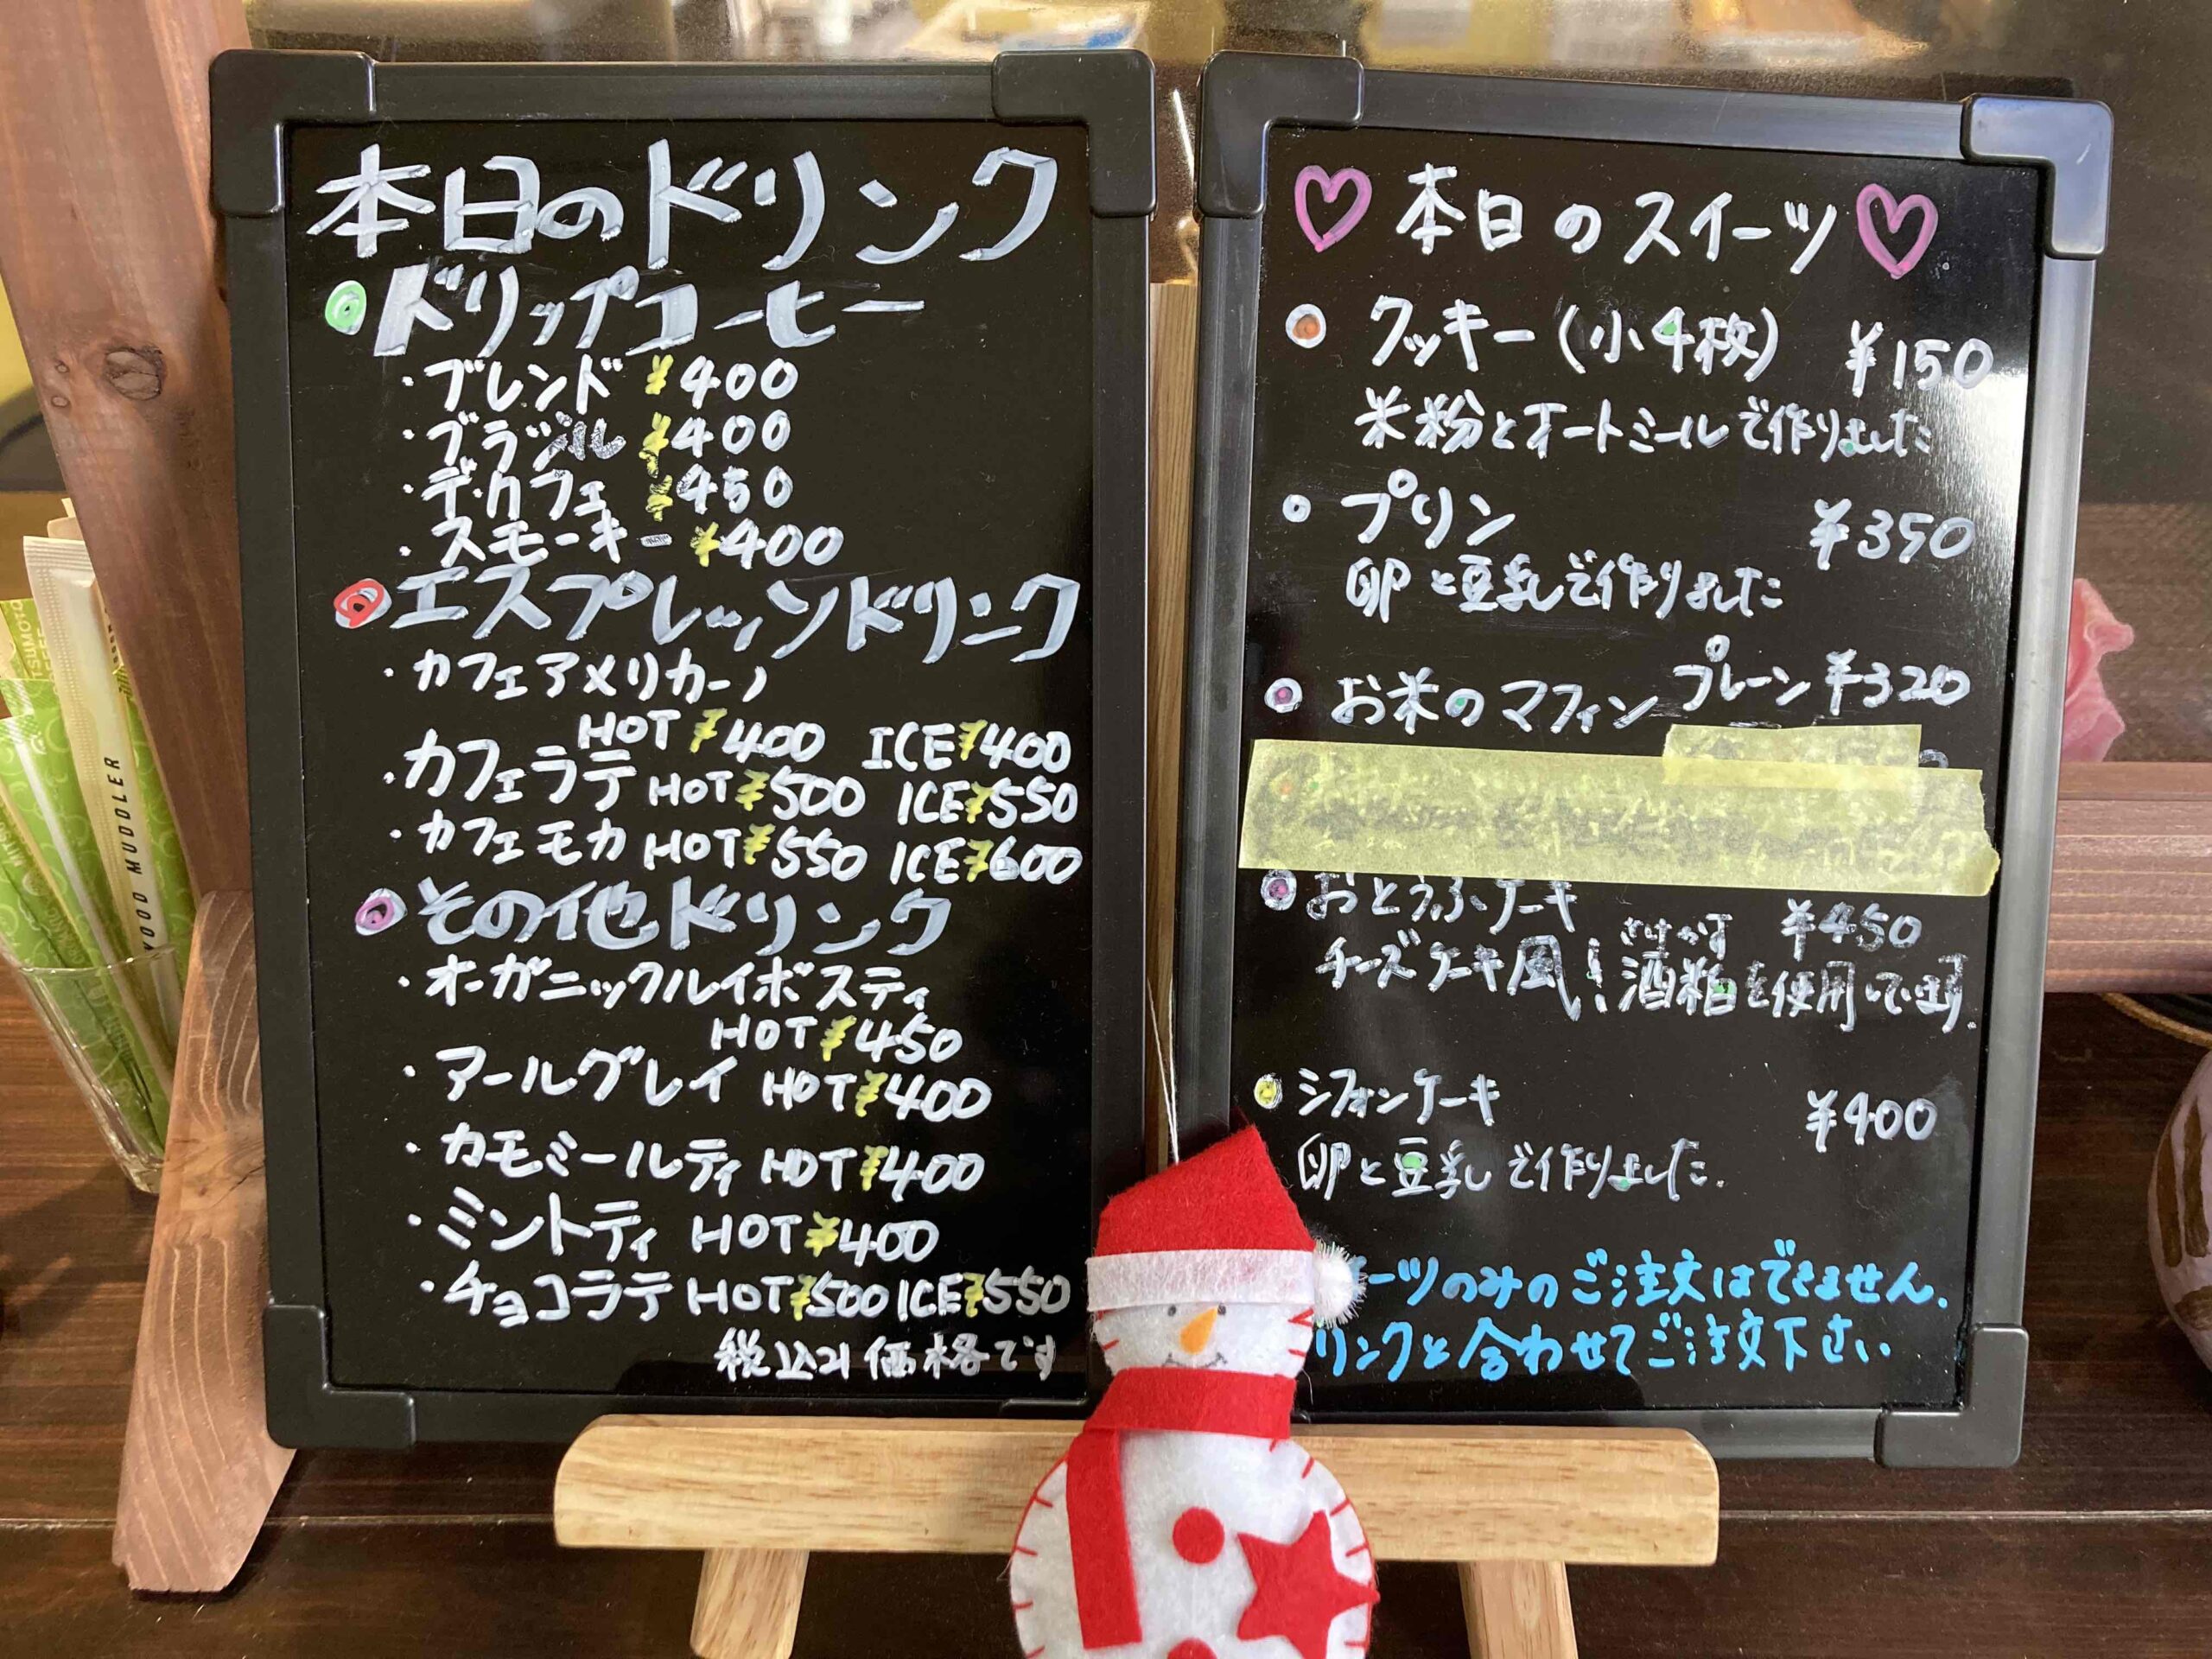 本日のドリンク
ドリップコーヒー
・ブレンド ¥400
・ブラジル ¥400
・デカフェ ¥450
・スモーキー ¥400
エスプレッソドリンク
・カフェアメリカーノ
HOT ¥400 ICE ¥400
・カフェラテ HOT ¥500 ICE ¥550
・カフェモカ HOT ¥550 ICE ¥600
その他ドリンク
・オーガニックルイボスティ
HOT ¥450
・アールグレイ HOT ¥400
・カモミールティ HOT ¥400
・ミントティ HOT ¥400
・チョコラテ HOT ¥500 ICE ¥550
税込み価格です
♡本日のスイーツ♡
クッキー(小4枚) ¥150
米粉とオートミールで作りました
プリン ¥350
卵と豆乳で作りました
お米のマフィン プレーン ¥320
おとうふケーキ ¥450
チーズケーキ風! 酒粕を使用しています。
さけかす
シフォンケーキ ¥400
卵と豆乳で作りました。
ーツのみのご注文はできません。
リンクと合わせてご注文下さい
WOOD MUDDLER